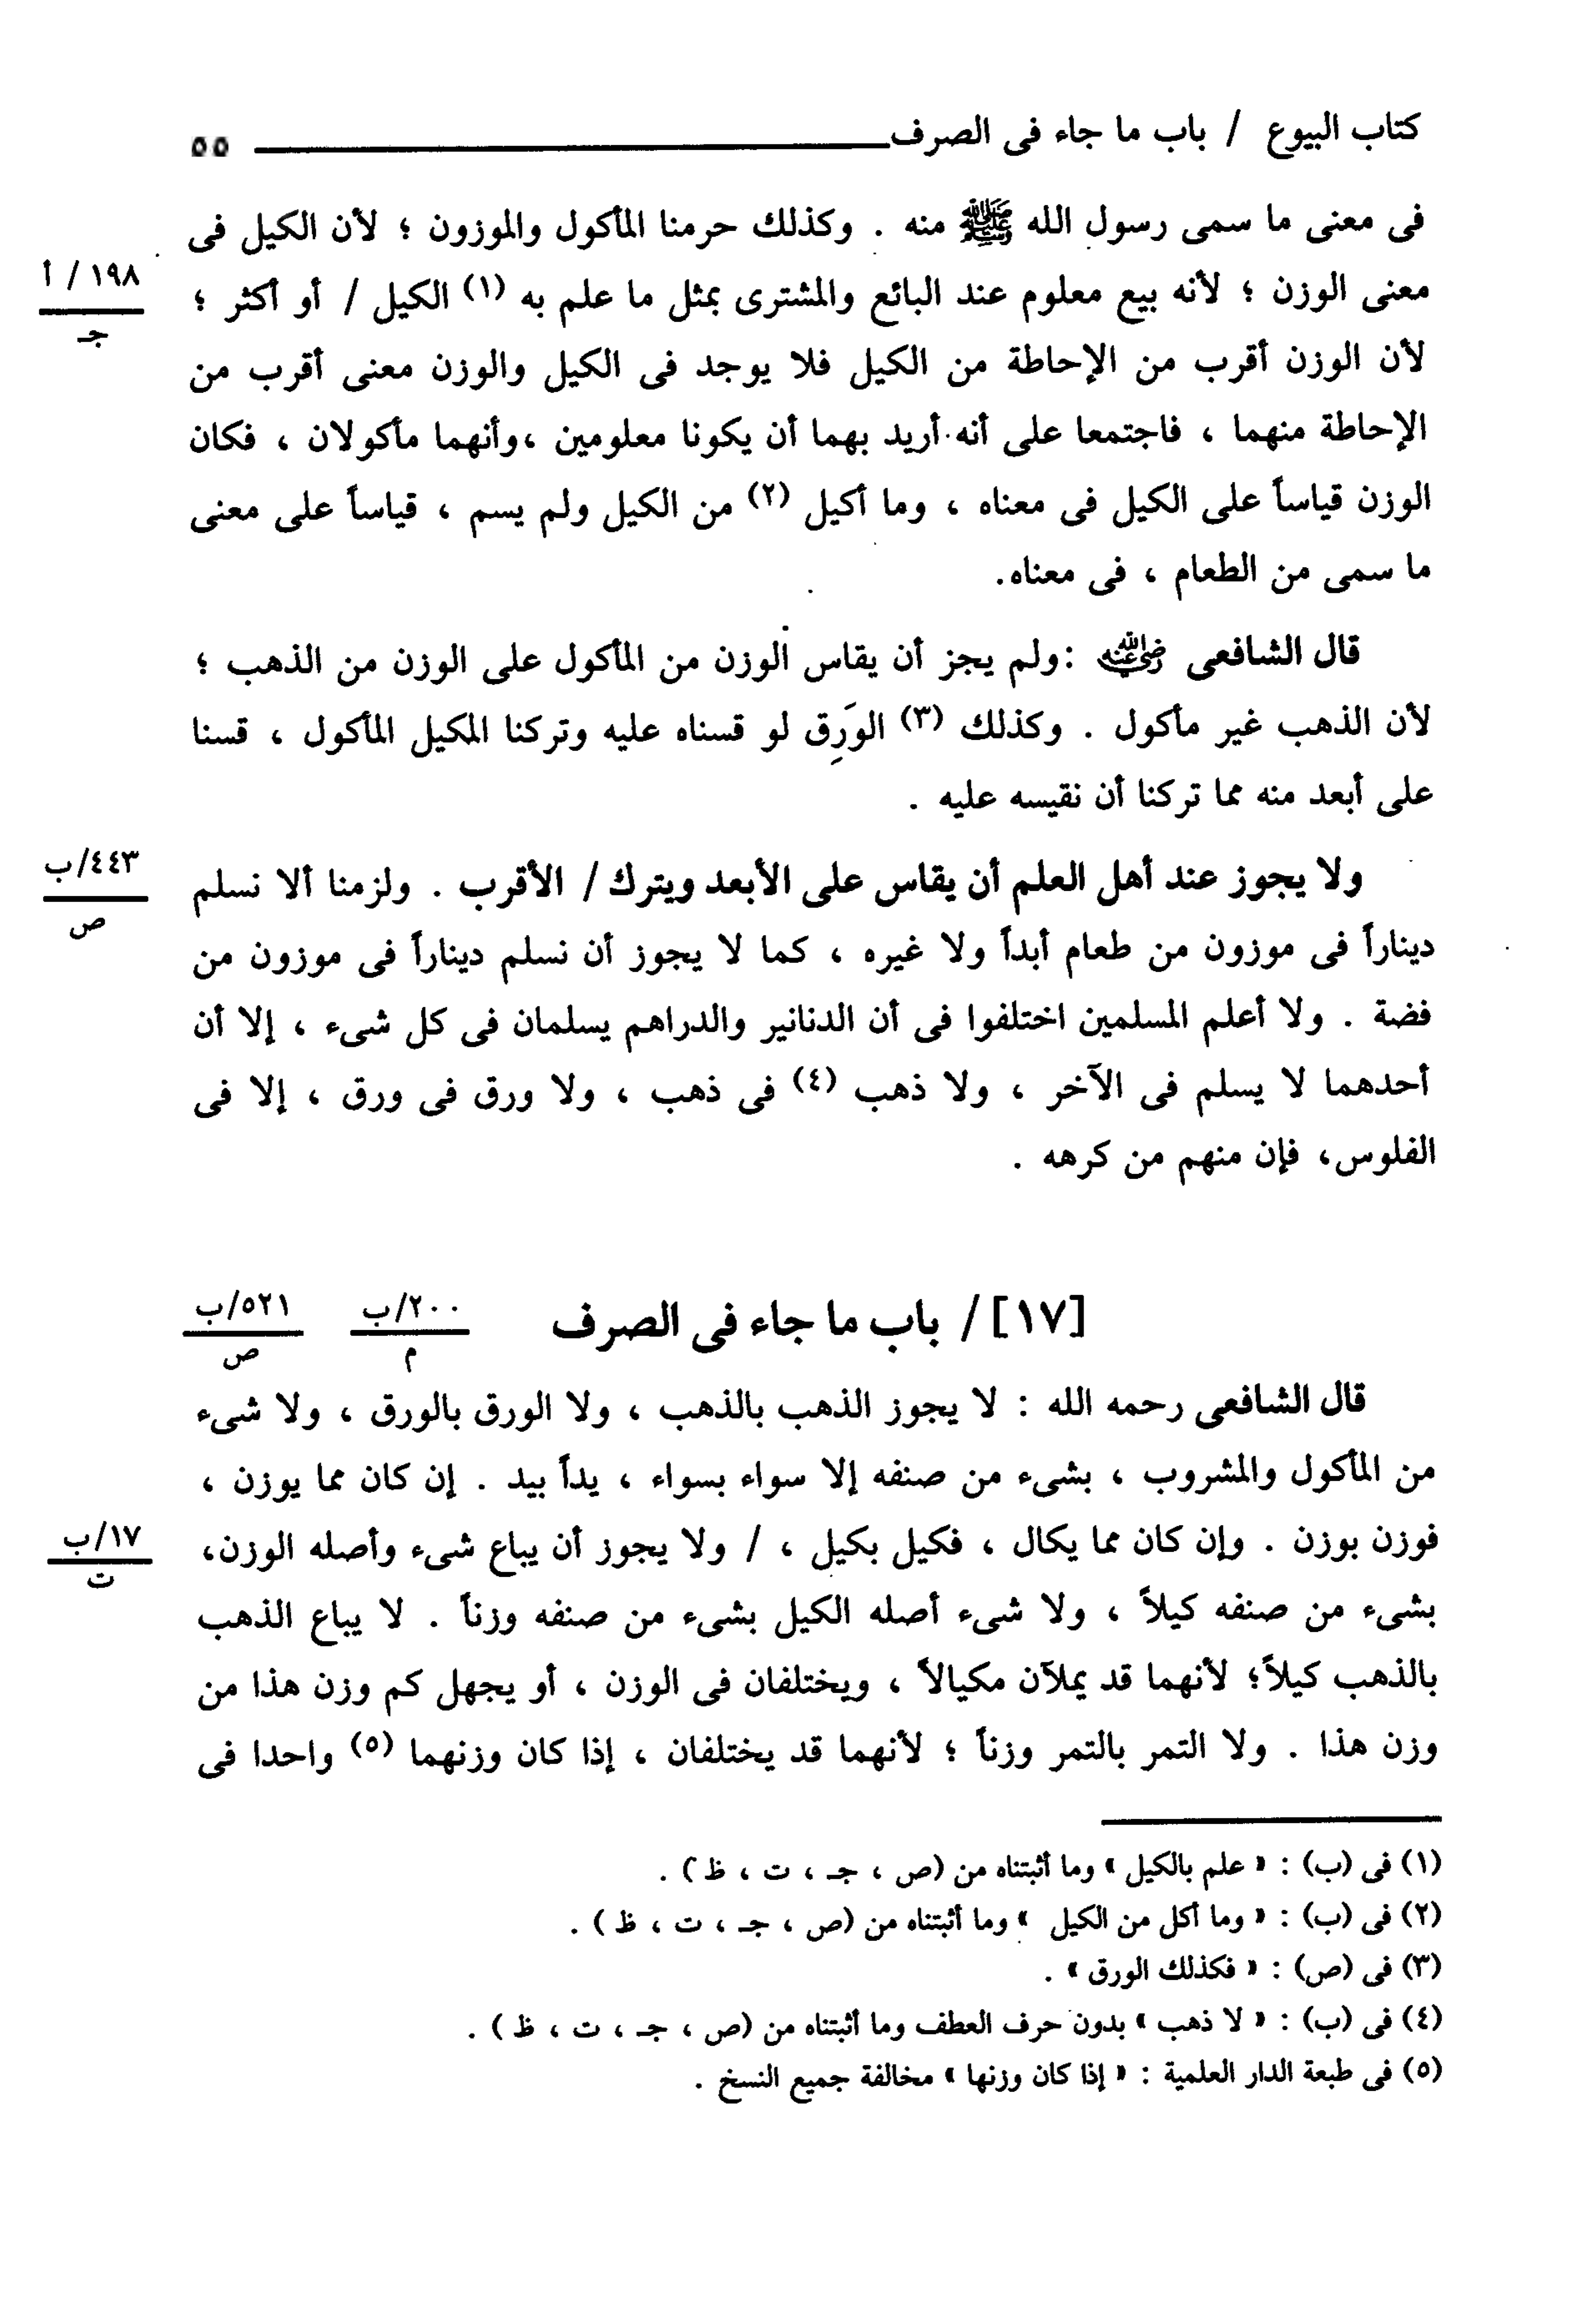 كتاب البيوع / باب ما جاء فى الصرف ٥٥
فى معنى ما سمى رسول الله ﷺ منه . وكذلك حرمنا المأكول والموزون ؛ لأن الكيل فى
معنى الوزن ؛ لأنه بيع معلوم عند البائع والمشترى بمثل ما علم به (١) الكيل / أو أكثر ؛
١٩٨ / أ
جـ
لأن الوزن أقرب من الإحاطة من الكيل فلا يوجد فى الكيل والوزن معنى أقرب من
الإحاطة منهما ، فاجتمعا على أنه أريد بهما أن يكونا معلومين ،وأنهما مأكولان ، فكان
الوزن قياساً على الكيل فى معناه ، وما أكيل (٢) من الكيل ولم يسم ، قياساً على معنى
ما سمى من الطعام ، فى معناه.
قال الشافعى رضي الله عنه :ولم يجز أن يقاس الوزن من المأكول على الوزن من الذهب ؛
لأن الذهب غير مأكول . وكذلك (٣) الوَرِق لو قسناه عليه وتركنا المكيل المأكول ، قسنا
على أبعد منه مما تركنا أن نقيسه عليه .
ولا يجوز عند أهل العلم أن يقاس على الأبعد ويترك / الأقرب . ولزمنا ألا نسلم
٤٤٣/ب
ص
ديناراً فى موزون من طعام أبداً ولا غيره ، كما لا يجوز أن نسلم ديناراً فى موزون من
فضة . ولا أعلم المسلمين اختلفوا فى أن الدنانير والدراهم يسلمان فى كل شىء ، إلا أن
أحدهما لا يسلم فى الآخر ، ولا ذهب (٤) فى ذهب ، ولا ورق فى ورق ، إلا فى
الفلوس، فإن منهم من كرهه .
[١٧] / باب ما جاء فى الصرف ٢٠٠/ب ٥٢١/ب
م ص
قال الشافعى رحمه الله : لا يجوز الذهب بالذهب ، ولا الورق بالورق ، ولا شىء
من المأكول والمشروب ، بشىء من صنفه إلا سواء بسواء ، يداً بيد . إن كان مما يوزن ،
فوزن بوزن . وإن كان مما يكال ، فكيل بكيل ، / ولا يجوز أن يباع شىء وأصله الوزن،
١٧/ب
ت
بشىء من صنفه كيلاً ، ولا شىء أصله الكيل بشىء من صنفه وزناً . لا يباع الذهب
بالذهب كيلاً؛ لأنهما قد يملآن مكيالاً ، ويختلفان فى الوزن ، أو يجهل كم وزن هذا من
وزن هذا . ولا التمر بالتمر وزناً ؛ لأنهما قد يختلفان ، إذا كان وزنهما (٥) واحدا فى
(١) فى (ب) : « علم بالكيل » وما أثبتناه من (ص ، جـ ، ت ، ظ ) .
(٢) فى (ب) : « وما أكل من الكيل » وما أثبتناه من (ص ، جـ ، ت ، ظ ) .
(٣) فى (ص) : « فكذلك الورق » .
(٤) فى (ب) : « لا ذهب » بدون حرف العطف وما أثبتناه من (ص ، جـ ، ت ، ظ ) .
(٥) فى طبعة الدار العلمية : « إذا كان وزنها » مخالفة جميع النسخ .